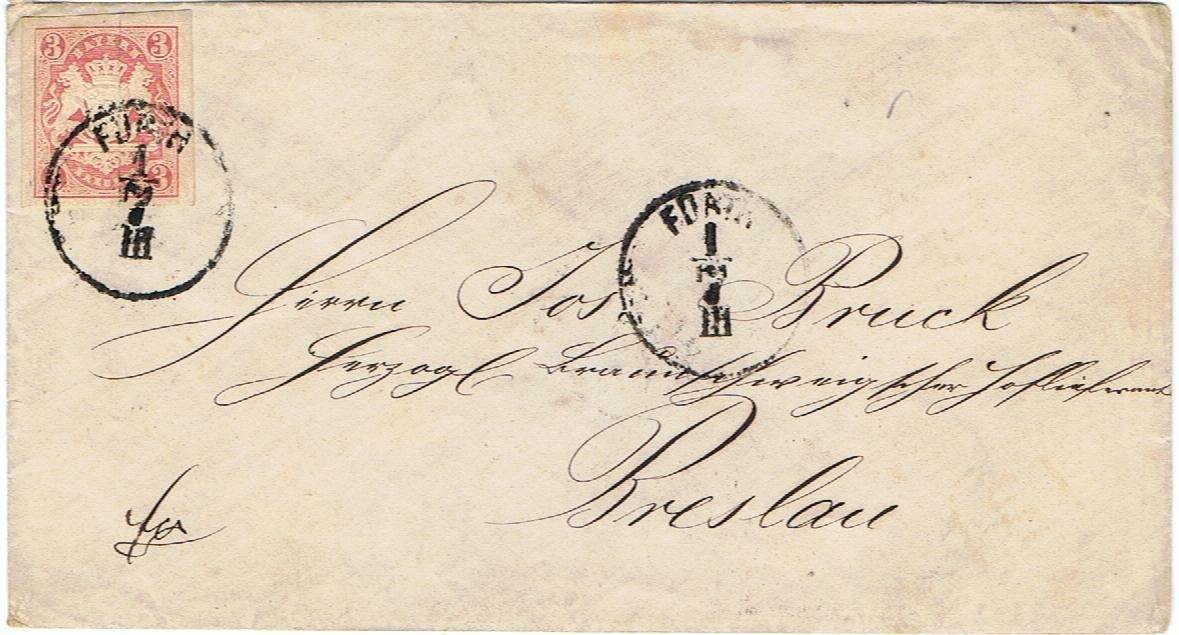 3 BAYERN 3
3
FÜRTH
1
7
III
FÜRTH
1
7
III
Herrn Jos Bruck
Herzogl Braunschweigscher Hoflieferant
Breslau
fro